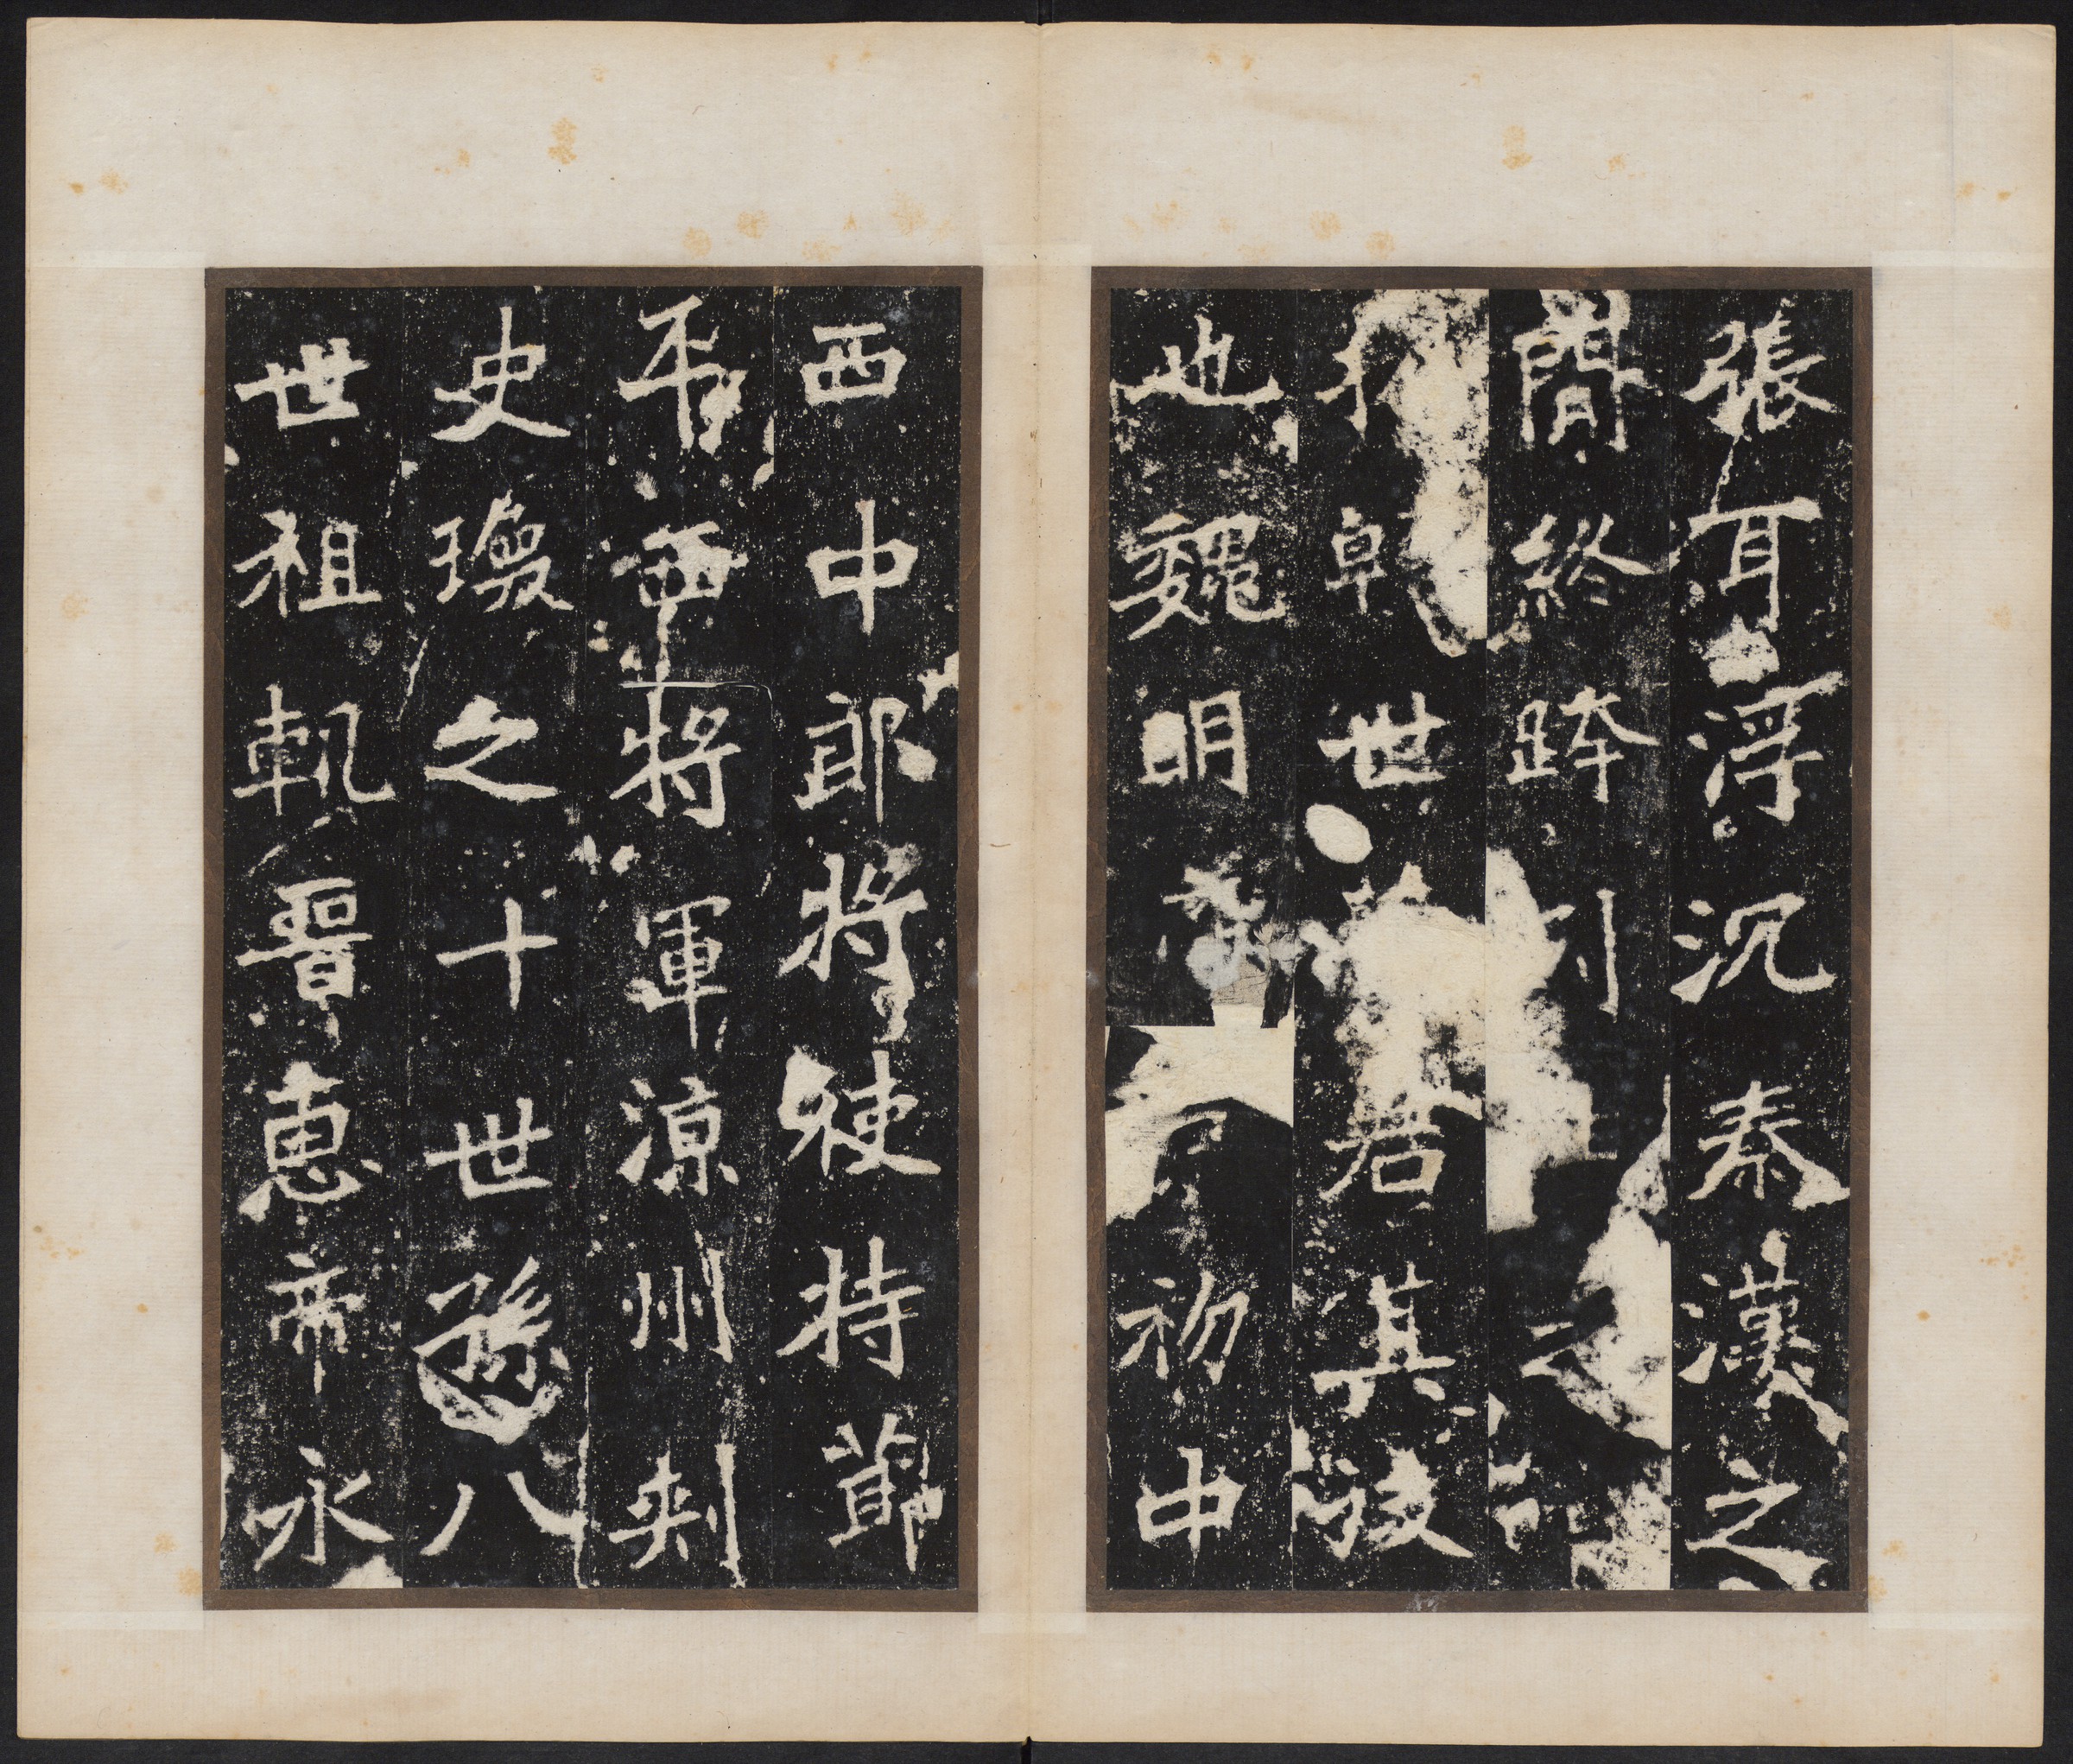 張耳浮沉秦漢之
間終跨列之
世君其後
也魏明初中
西中郎將使持節
平西將軍涼州刾
史瓊之十世孫八
世祖軌晉惠帝永